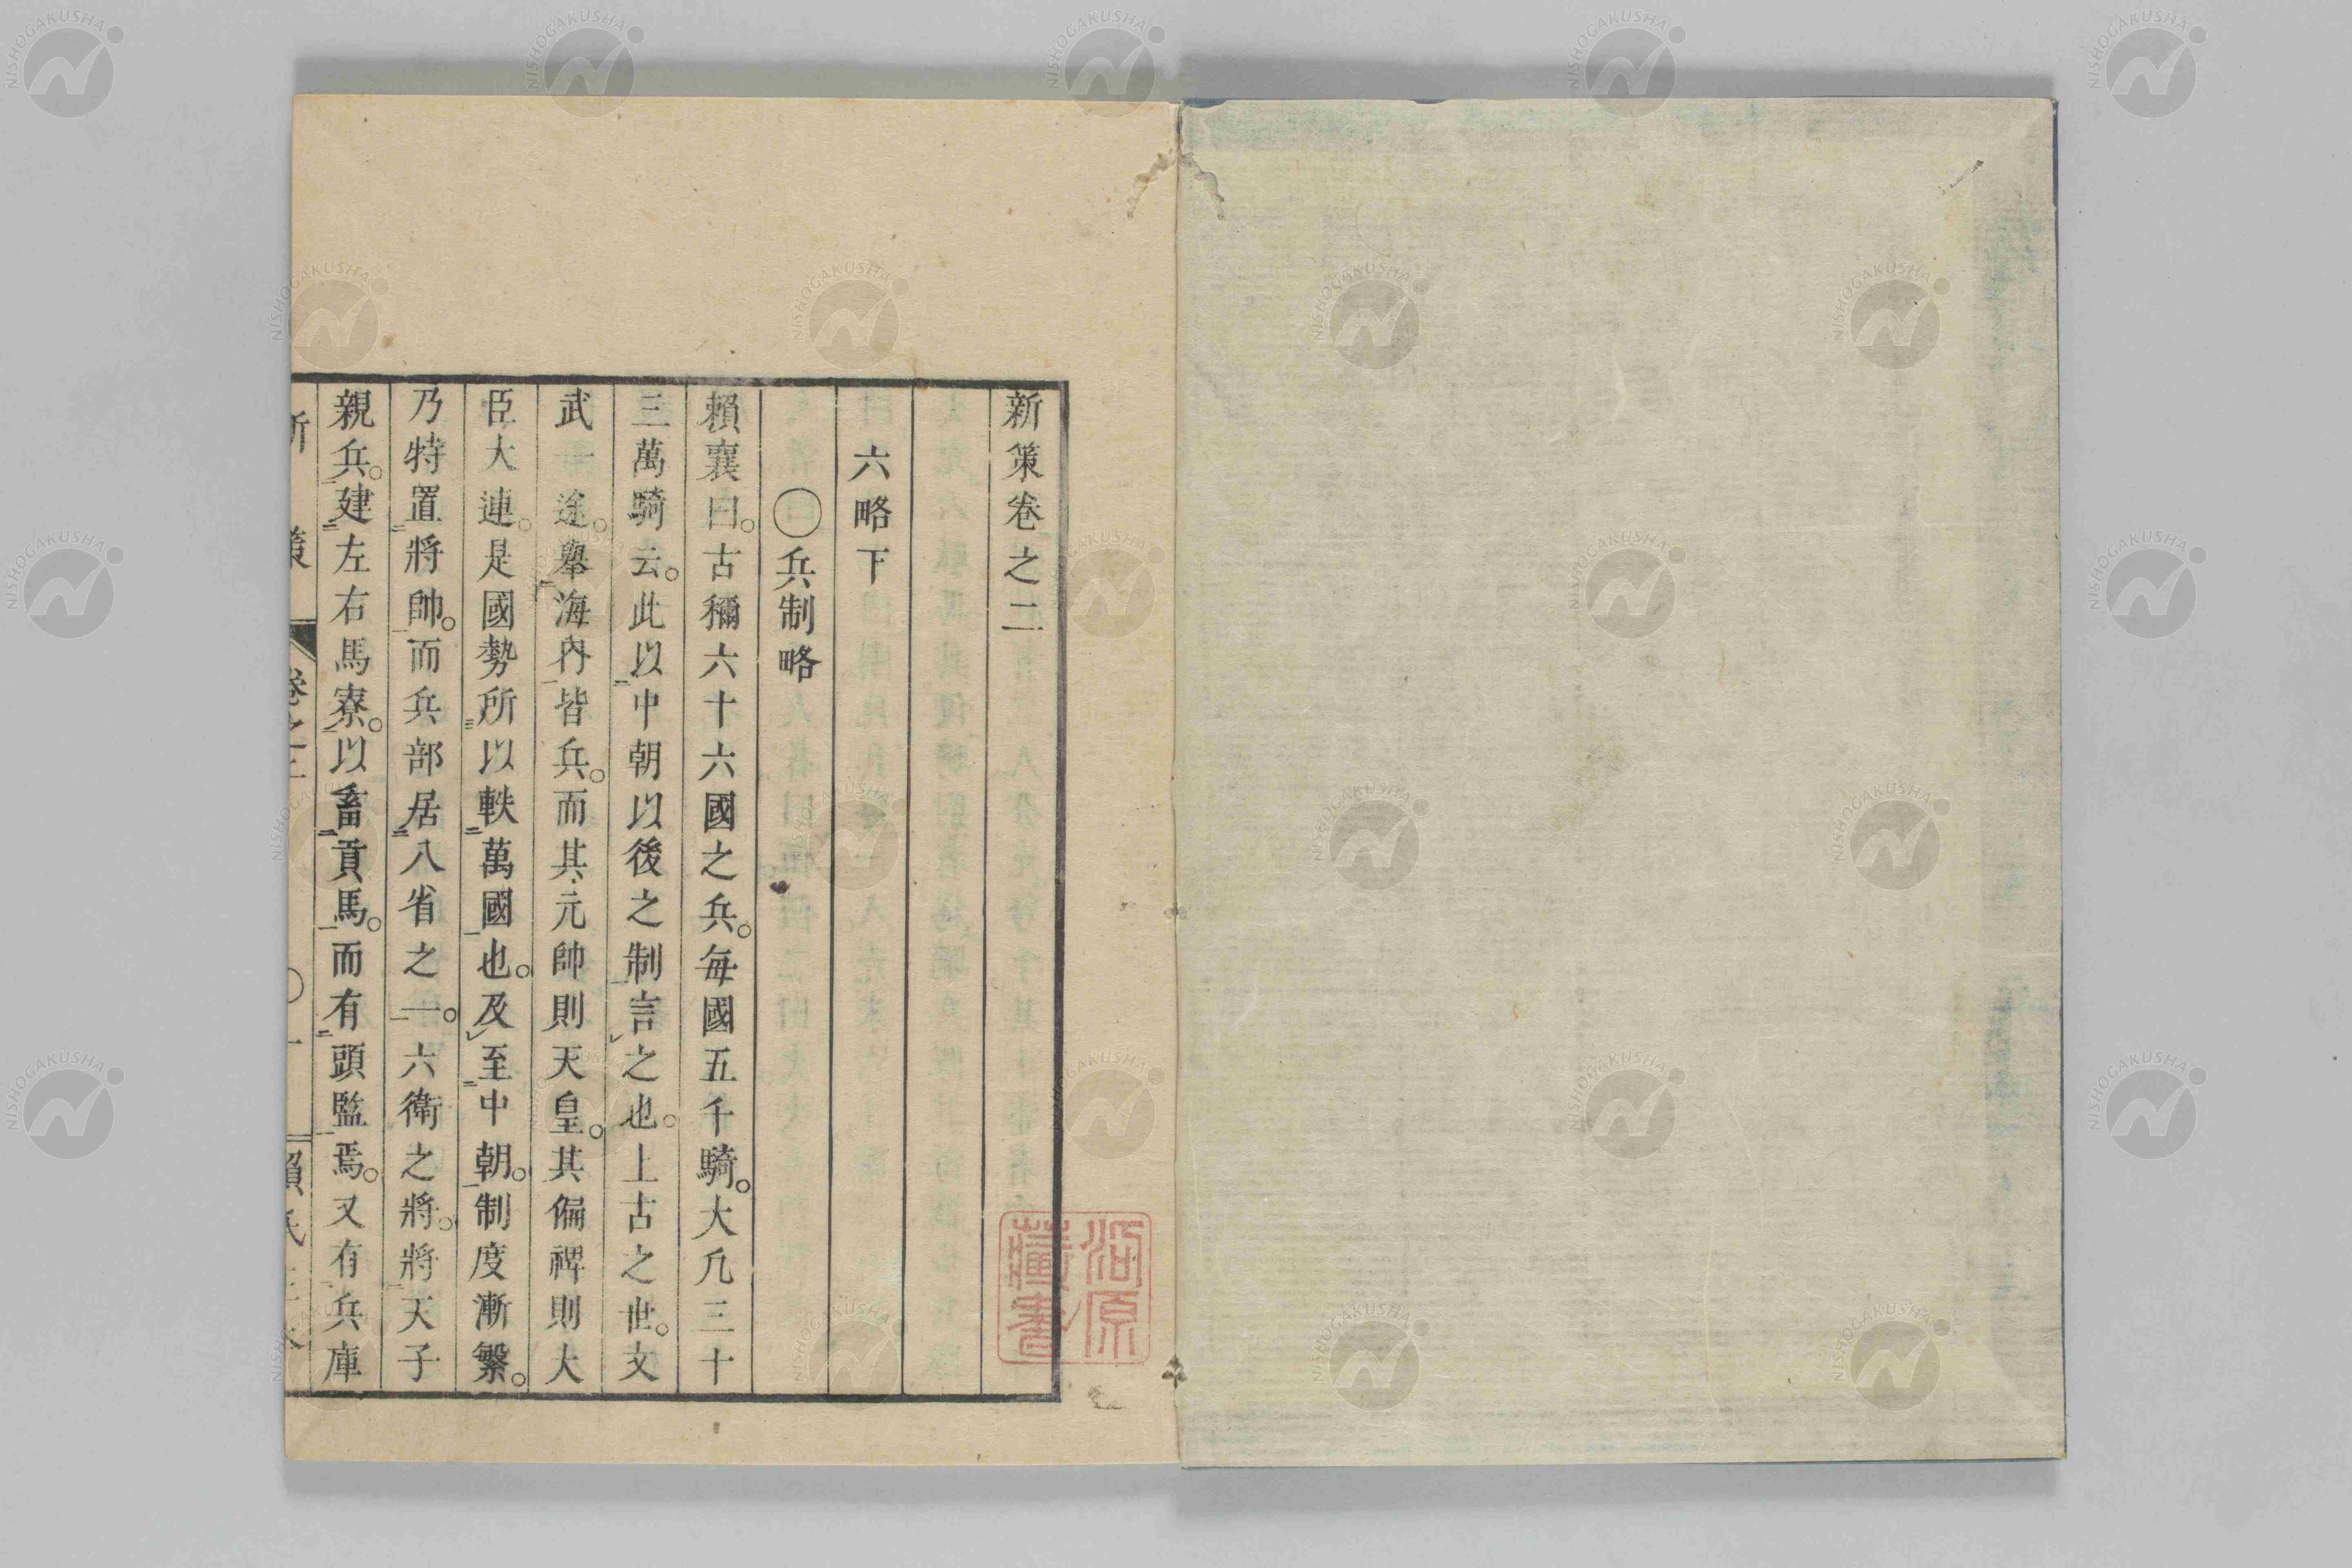 新策卷之二
六略下
〇兵制略
賴襄曰。古稱六十六國之兵。每國五千騎。大凡三十
三萬騎云。此以中朝以後之制言之也。上古之世。文
武一途。舉海內皆兵。而其元帥則天皇。其偏裨則大
臣大連。是國勢所以軼萬國也。及至中朝。制度漸繁。
乃特置將帥。而兵部居八省之一。六衛之將。將天子
親兵。建左右馬寮。以畜貢馬。而有頭監焉。又有兵庫
河原
藏書
NISHOGAKUSHA